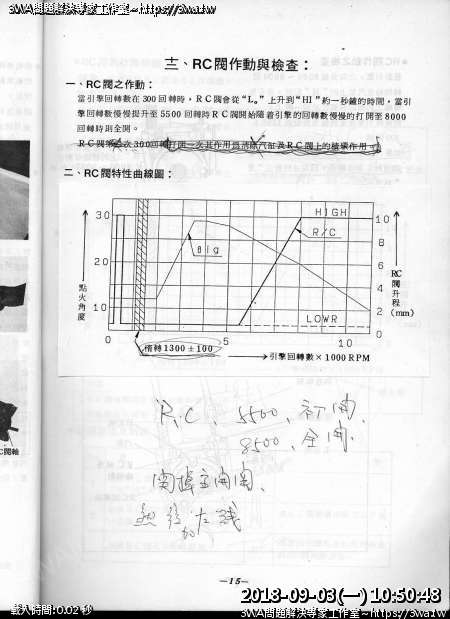 3WA問題解決專家工作室~https://3wa.tw
3WA問題解決專家工作室~https://3wa.tw
三、RC閥作動與檢查：
一、RC閥之作動：
當引擎回轉數在300回轉時，RC閥會從“L。”上升到“HI”約一秒鐘的時間，當引
擎回轉數慢慢提升至5500回轉時RC閥開始隨着引擎的回轉數慢慢的打開至8000
回轉時則全開。
二、RC閥特性曲線圖：
30
20
10
點火角度
HIGH
R/C
Big
LOWR
10
8
6
4
2
0
RC閥升程(mm)
0
5
10
惰轉1300±100
引擎回轉數×1000RPM
C閥軸
R.C、5500、初開、
8500、全開、
-15-
2018-09-03(一) 10:50:48
載入時間：0.02 秒
3WA問題解決專家工作室~https://3wa.tw